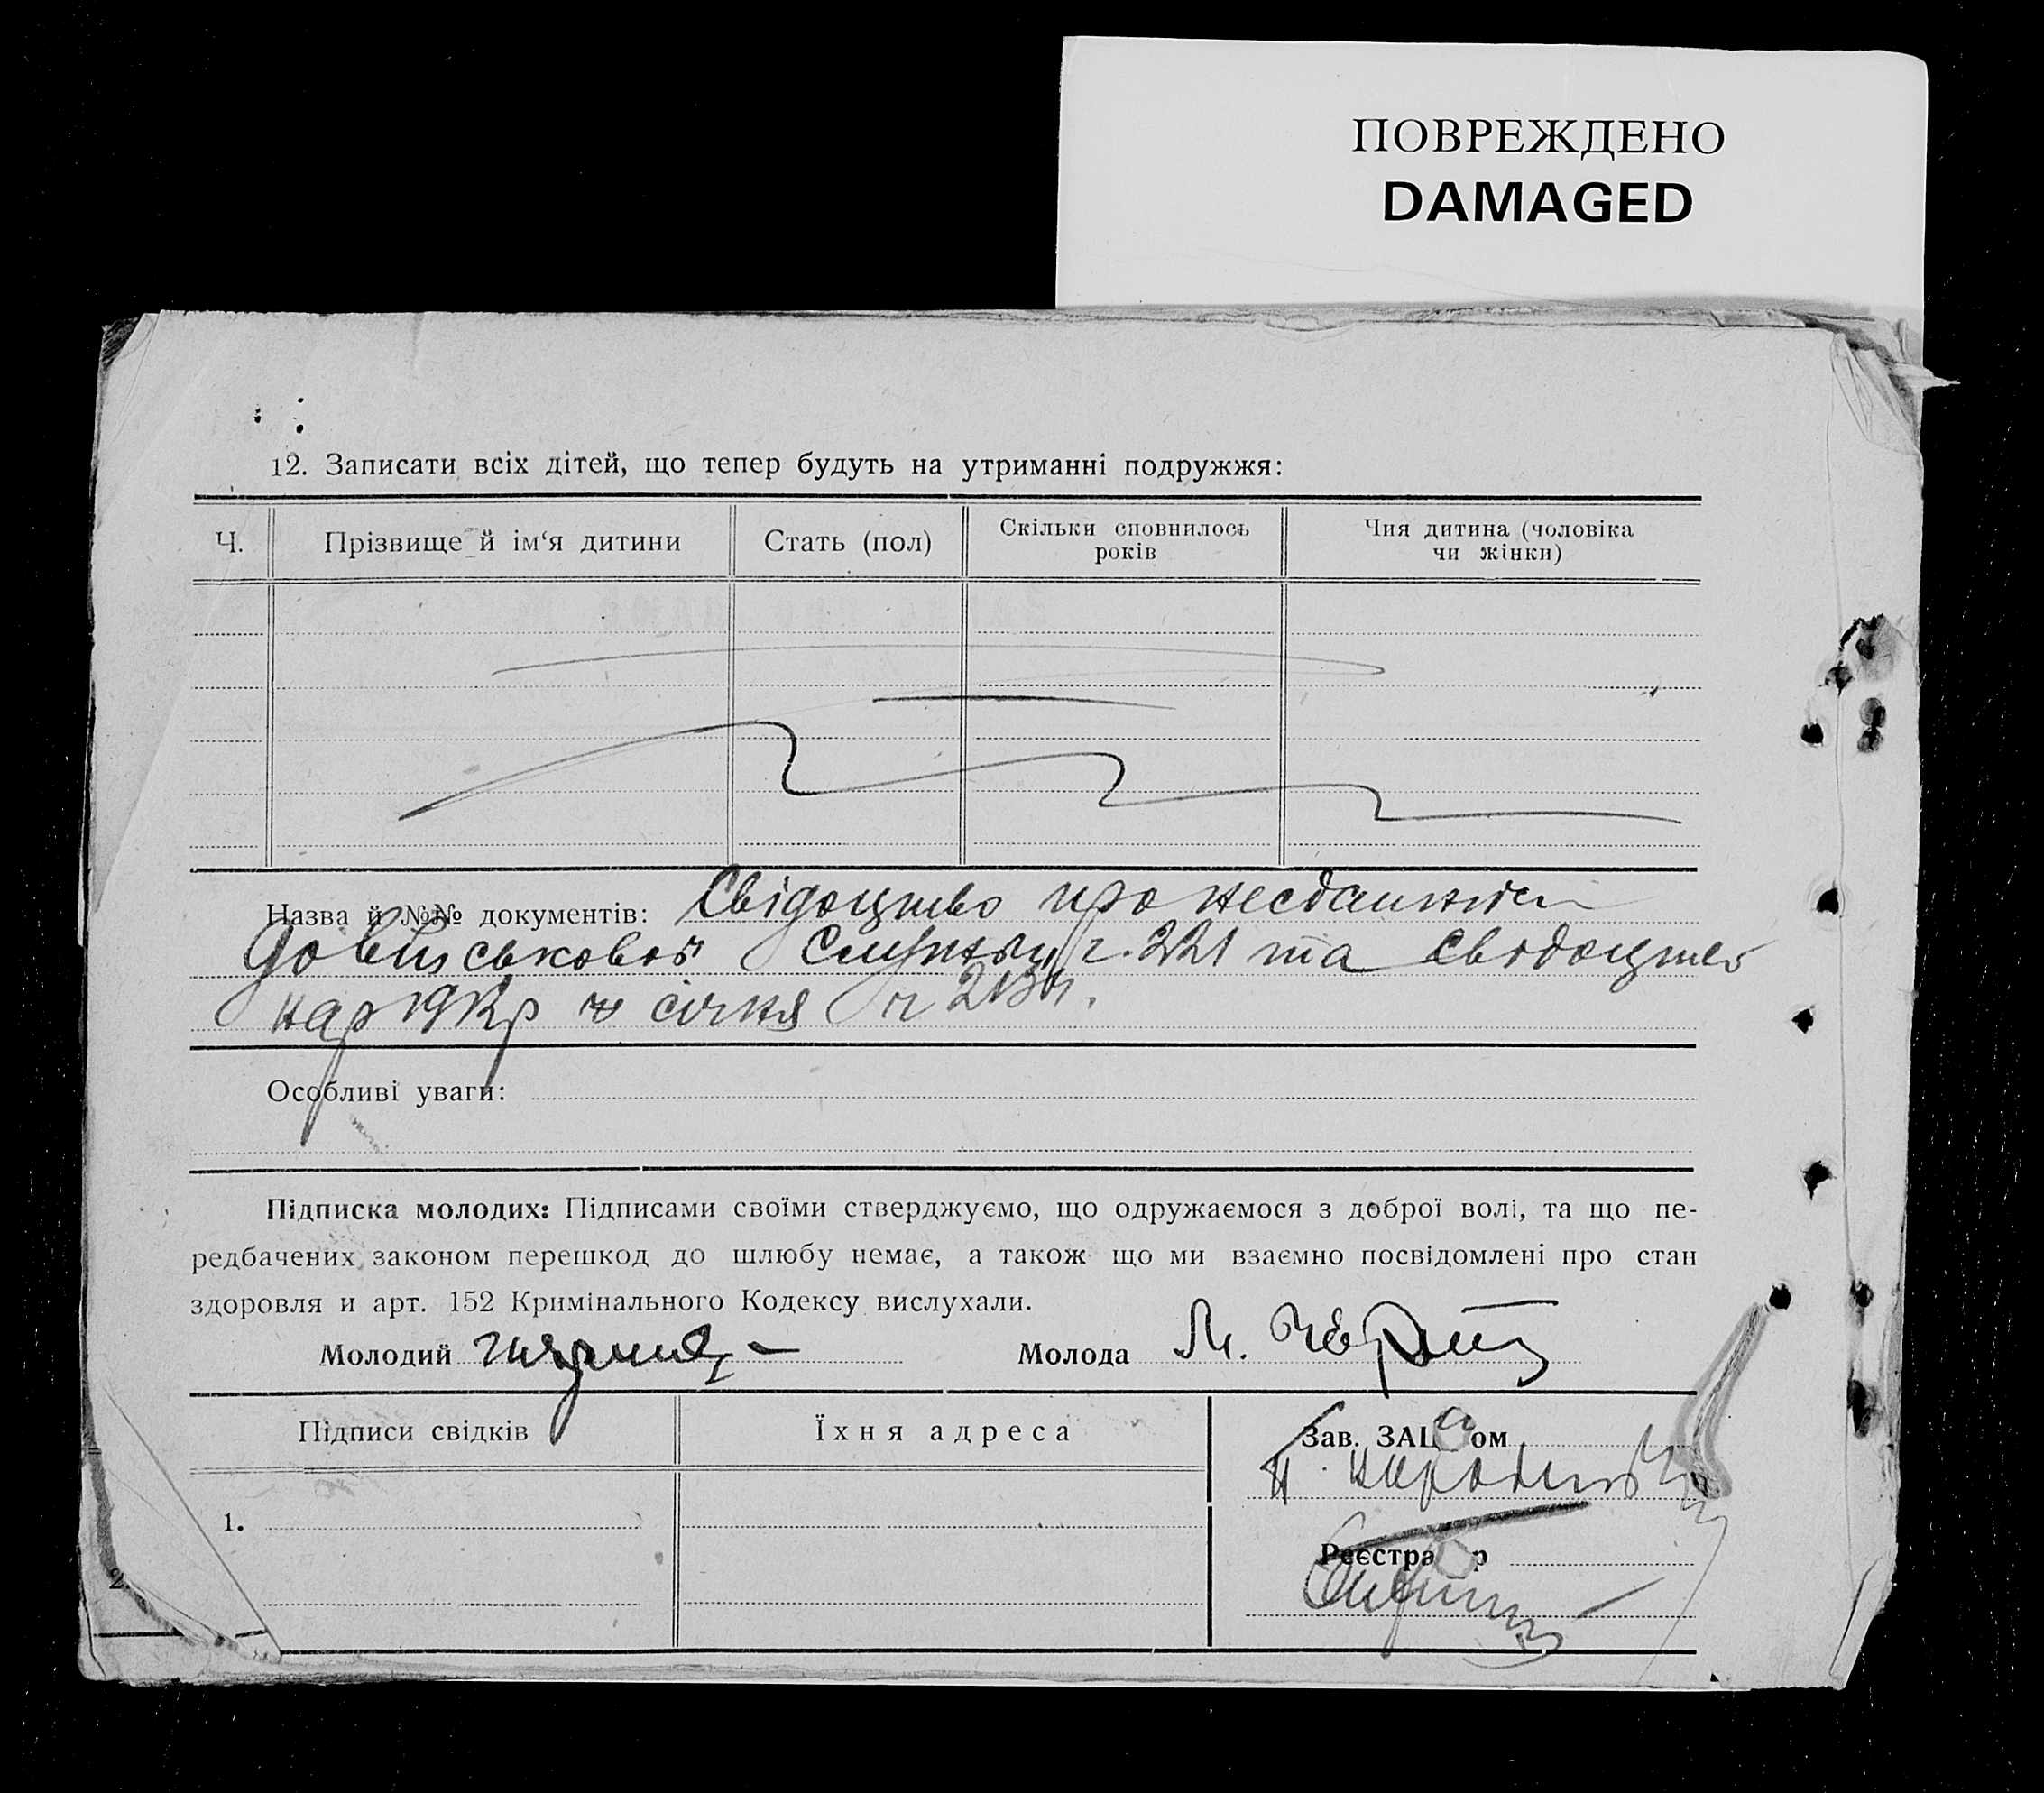 ПОВРЕЖДЕНО
DAMAGED
12. Записати всіх дітей, що тепер будуть на утриманні подружжя:
Ч.
Прізвище й ім‘я дитини
Стать (пол)
Скільки сповнилось
років
Чия дитина (чоловіка
чи жінки)
Назва й №№ документів: Свідоцтво про
військової ч. 221 та свідоцтво
січня ч
Особливі уваги:
Підписка молодих: Підписами своїми стверджуємо, що одружаємося з доброї волі, та що пе-
редбачених законом перешкод до шлюбу немає, а також що ми взаємно посвідомлені про стан
здоровля и арт. 152 Кримінального Кодексу вислухали.
Молодий
Молода М.
Підписи свідків
Їхня адреса
Зав. ЗАЦ ом
1.
Реєстра р
2